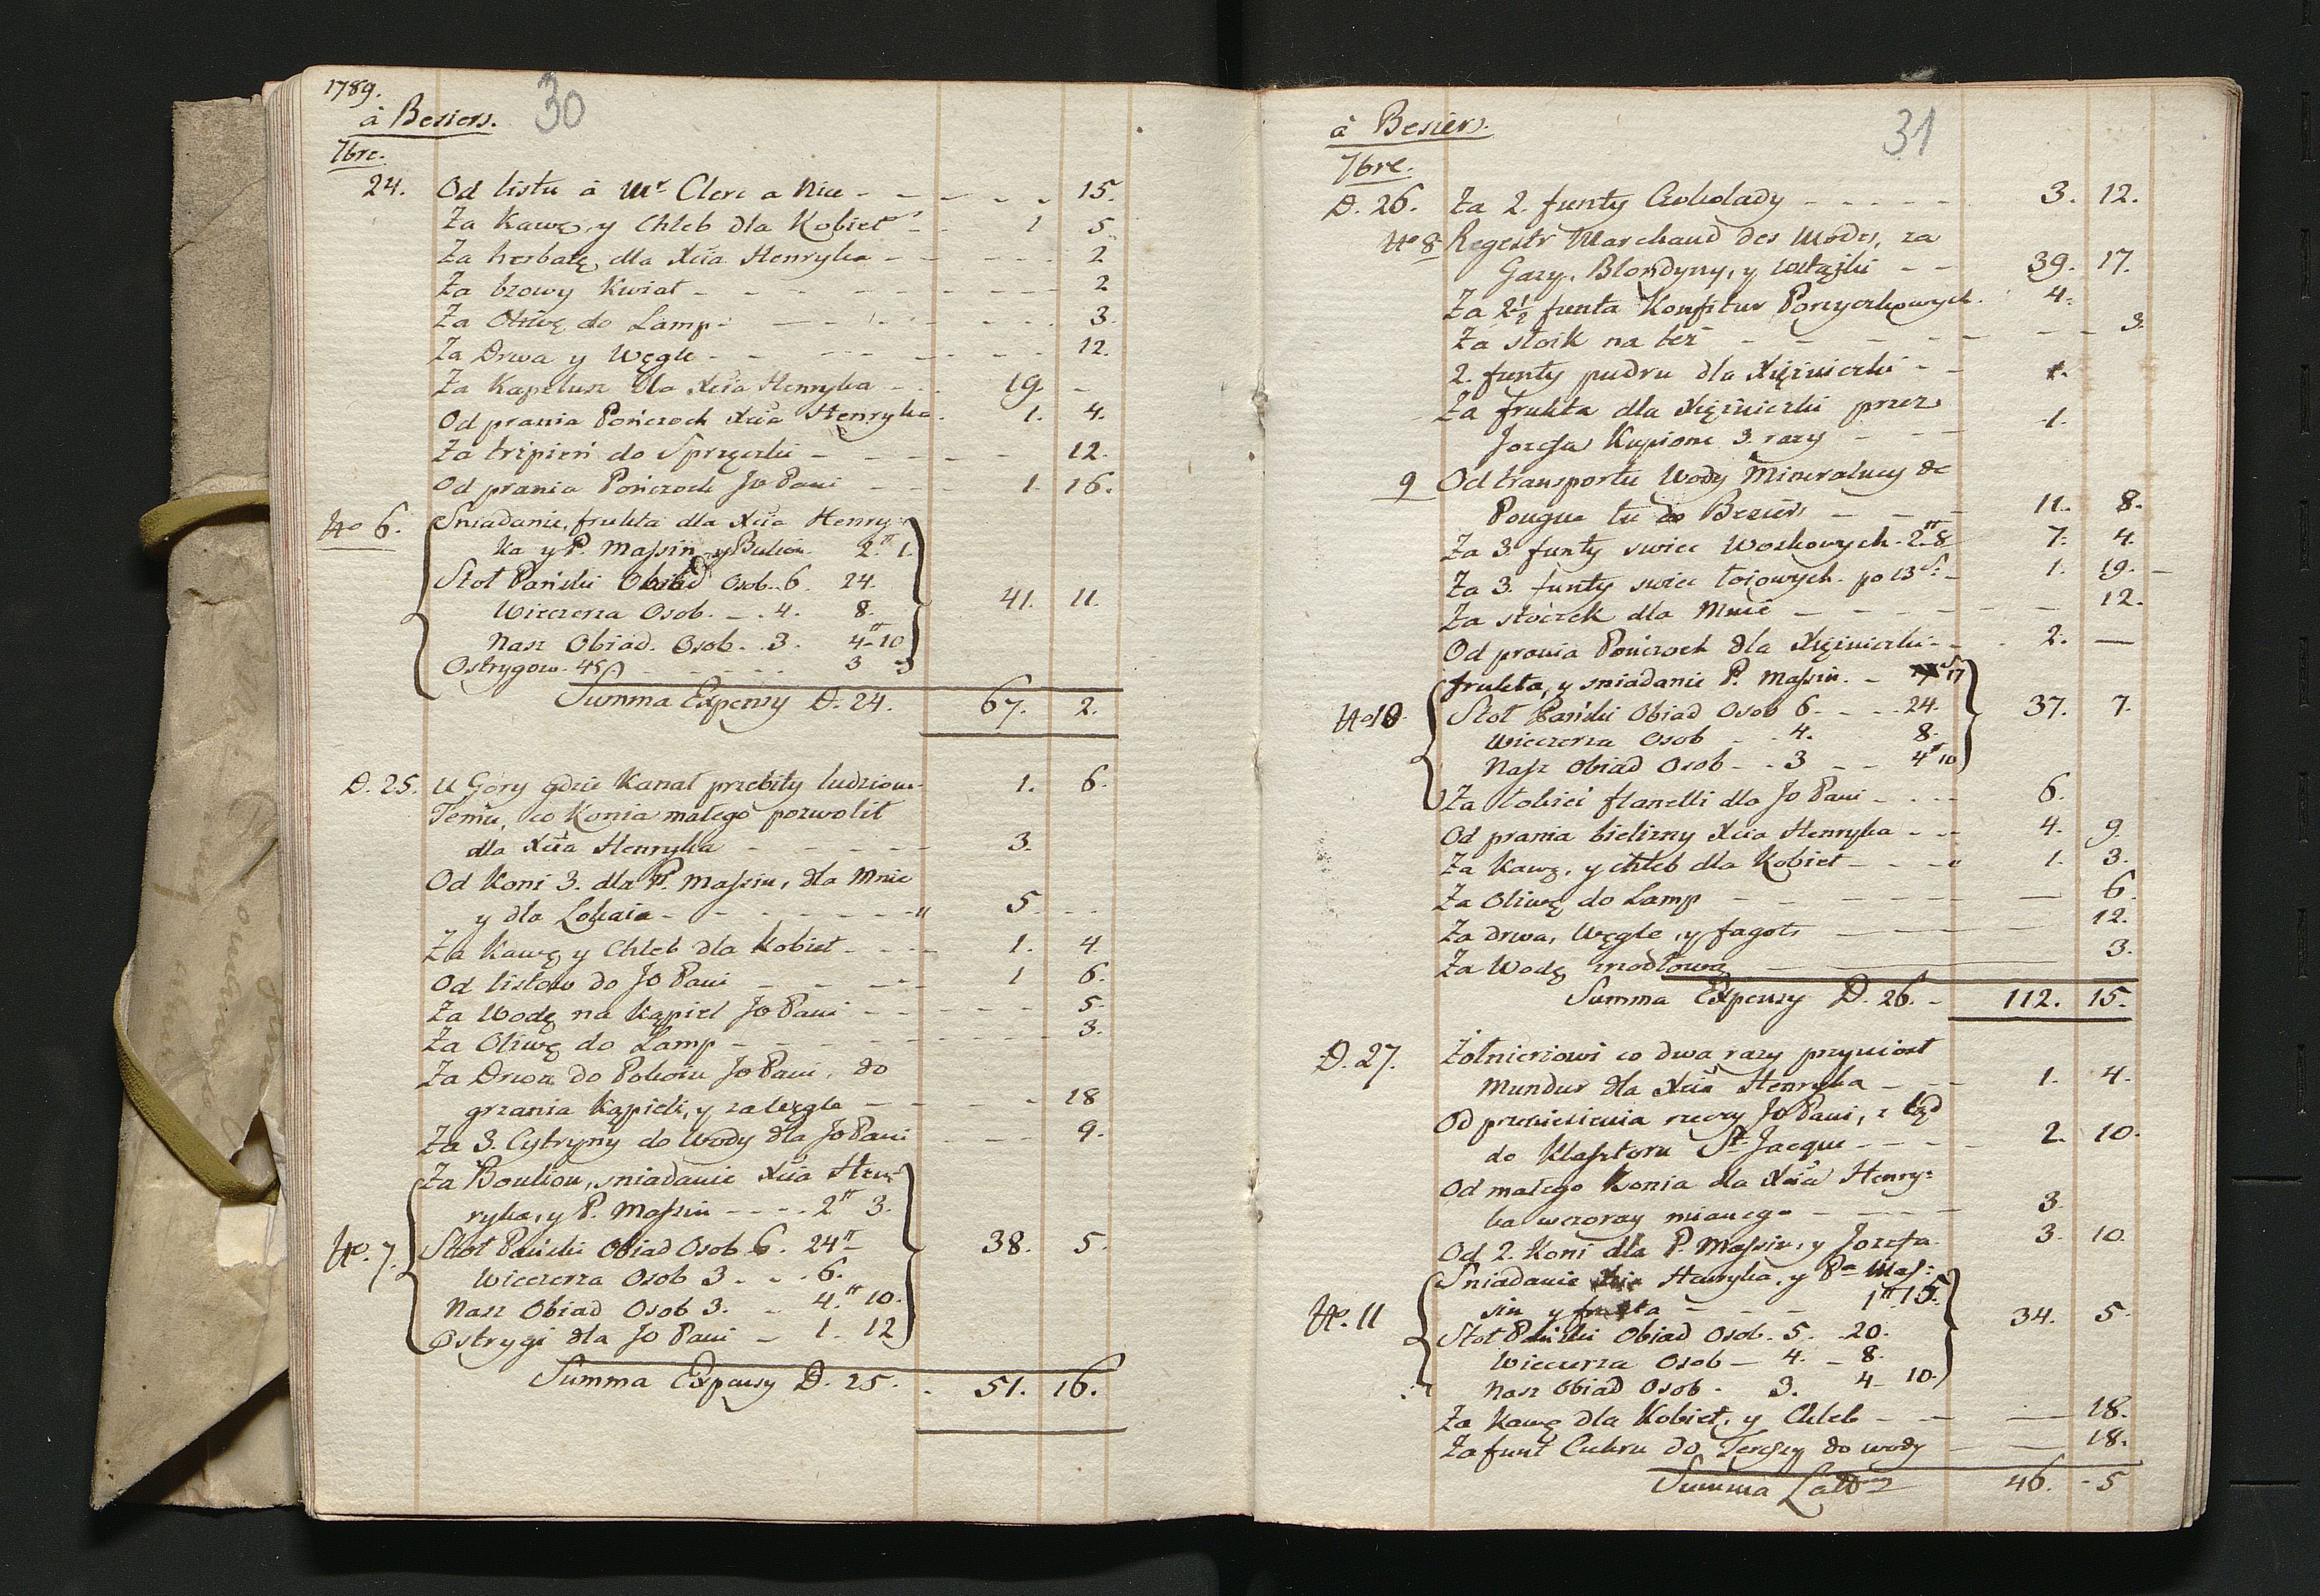 1789.
à Besiers.
30
7bre.
24. Od listu à Mr. Clerc a Nice - - - - 15.
Za Kawę, y Chleb dla Kobiet - - 1 5
Za herbatę dla Xcia Henryka - - - - 2
Za bzowy Kwiat - - - - - 2
Za Oliwę do Lamp - - - - 3.
Za Drwa y Węgle - - - - 12.
Za Kapelusz dla Xcia Henryka - - 19. -
Od prania Pończoch Xcia Henryka. 1. 4.
Za tripień do Sprzęczki - - - 12.
Od prania Pończoch Jo Pani - - 1. 16.
No 6. Sniadanie, frukta dla Xcia Henry-
ka y P. Massin y Bulion. 2.tt 1.
Stoł Pański Obiad Osob. 6. 24.
Wieczerza Osob. - . 4. 8.
Nasz Obiad. Osob. . 3. 4-tt 10
41. 11.
Ostrygow. 45 - - - - 3 -
Summa Expensy D. 24. 67. 2.
D. 25. U Góry gdzie Kanał przebity ludziom- 1. 6.
Temu, co Konia małego pozwolił
dla Xcia Henryka - - - - - 3.
Od Koni 3. dla P. Massin, dla Mnie
y dla Lokaia - - - - - - 5. - -
Za Kawę y Chleb dla Kobiet - - - 1. 4
Od listow do Jo Pani - - - - 1 6.
Za Wodę na Kąpiel Jo Pani - - - - - 5.
Za Oliwę do Lamp - - - - - - 3.
Za Drwa do Pokoiu Jo Pani, do
grzania Kąpieli, y za Węgle - - - - 18
Za 3. Cytryny do Wody dla Jo Pani - - - 9.
Za Boulion, sniadanie Xcia Hen-
ryka, y P. Massin - - - - 2tt 3.
No. 7. Stoł Pański Obiad Osob 6. 24tt - 38. 5.
Wieczerza Osob 3 - . . 6.
Nasz Obiad Osob 3. - 4.tt 10.
Ostrygi dla Jo Pani - 1. 12
Summa Expensy D. 25. - 51. 16.
à Besiers.
31
7bre.
D. 26. Za 2. funty Czokolady - - - - - 3. 12.
No 8. Regestr Marchand des Modes, za
Gazy, Blondyny, y wstążki - - 39. 17.
Za 2 1/2 funta Konfitur Porzyczkowych. 4.
Za słoik na też - - - - - - - 3.
2. funty pudru dla Xiężniczki - - 1.
Za frukta dla Xiężniczki przez
Jozefa Kupione 3. razy - - - 1.
9 Od transportu Wody Mineralney de
Pougue tu do Beziers - - - 11. 8.
Za 3. funty swiec Woskowych. 2.tt8 7. 4.
Za 3. funty swiec łoiowych. po 13 s. - 1. 19. -
Za stoczek dla Mnie - - - - - 12.
Od prania Pończoch dla Xiężniczki - . 2. -
frukta, y sniadanie P. Massin. - 17
No 10. Stoł Pański Obiad Osob 6. - . . 24. 37. 7.
Wieczerza Osob - . 4. 8.
Nasz Obiad Osob - - 3 - - 4tt 10
Za łokieć flanelli dla Jo Pani - . - - 6.
Od prania bielizny Xcia Henryka - - - 4. 9.
Za Kawę, y chleb dla Kobiet - - . - 1. 3.
Za Oliwę do Lamp - - - - - - 6.
Za drwa, Węgle, y fagots - - - 12.
Za Wodę zrodłową - - 3.
Summa Expensy D. 26. - 112. 15.
D. 27. Żołnierzowi co dwa razy przyniosł
Mundur dla Xcia Henryka - - - 1. 4.
Od przeniesienia rzeczy Jo Pani, z tąd
do Klasztoru St Jacque - - - - - 2. 10.
Od małego Konia dla Xcia Henry-
ka wczoray mianego - - - - - 3.
Od 2. Koni dla P. Massin, y Jozefa. 3. 10.
Sniadanie Xcia Henryka, y Pa Mas-
sin y frukta - - - 1tt 15.
No. 11 Stoł Pański Obiad Osob. 5. .20. 34. 5.
Wieczerza Osob - 4. - 8.
Nasz Obiad Osob - 3. 4- 10.
Za Kawę dla Kobiet, y Chleb - - - - 18.
Za funt Cukru do Teressy do wody - - 18.
Summa Latus 46. - 5